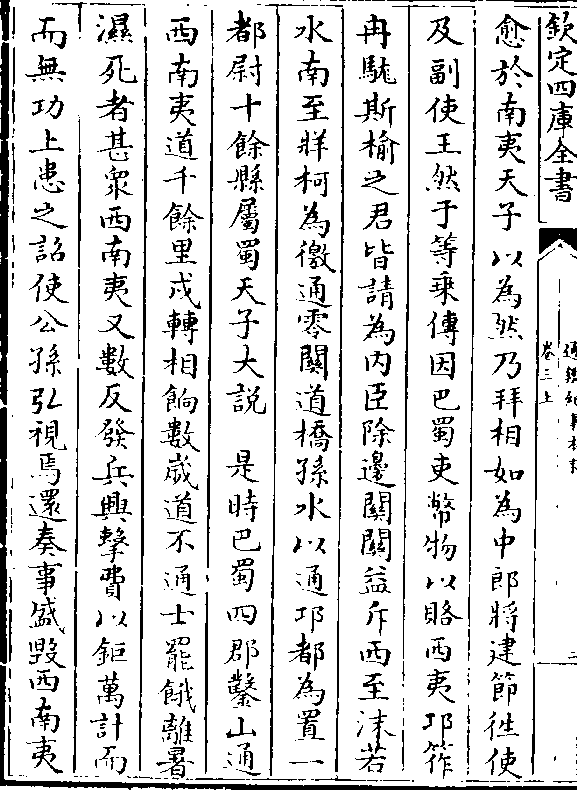 欽定四庫全書
通鑑紀事本末
卷三上
愈於南夷天子以為然乃拜相如為中郎將建節徃使
及副使王然于等乗傳因巴蜀吏幣物以賂西夷卭筰
冉駹斯榆之君皆請為内臣除邊關關益斥西至沫若
水南至牂柯為徼通零關道橋孫水以通卭都為置一
都尉十餘縣屬蜀天子大説　是時巴蜀四郡鑿山通
西南夷道千餘里戍轉相餉數歳道不通士罷餓離暑
濕死者甚衆西南夷又數反發兵興擊費以鉅萬計而
而無功上患之詔使公孫弘視焉還奏事盛毁西南夷